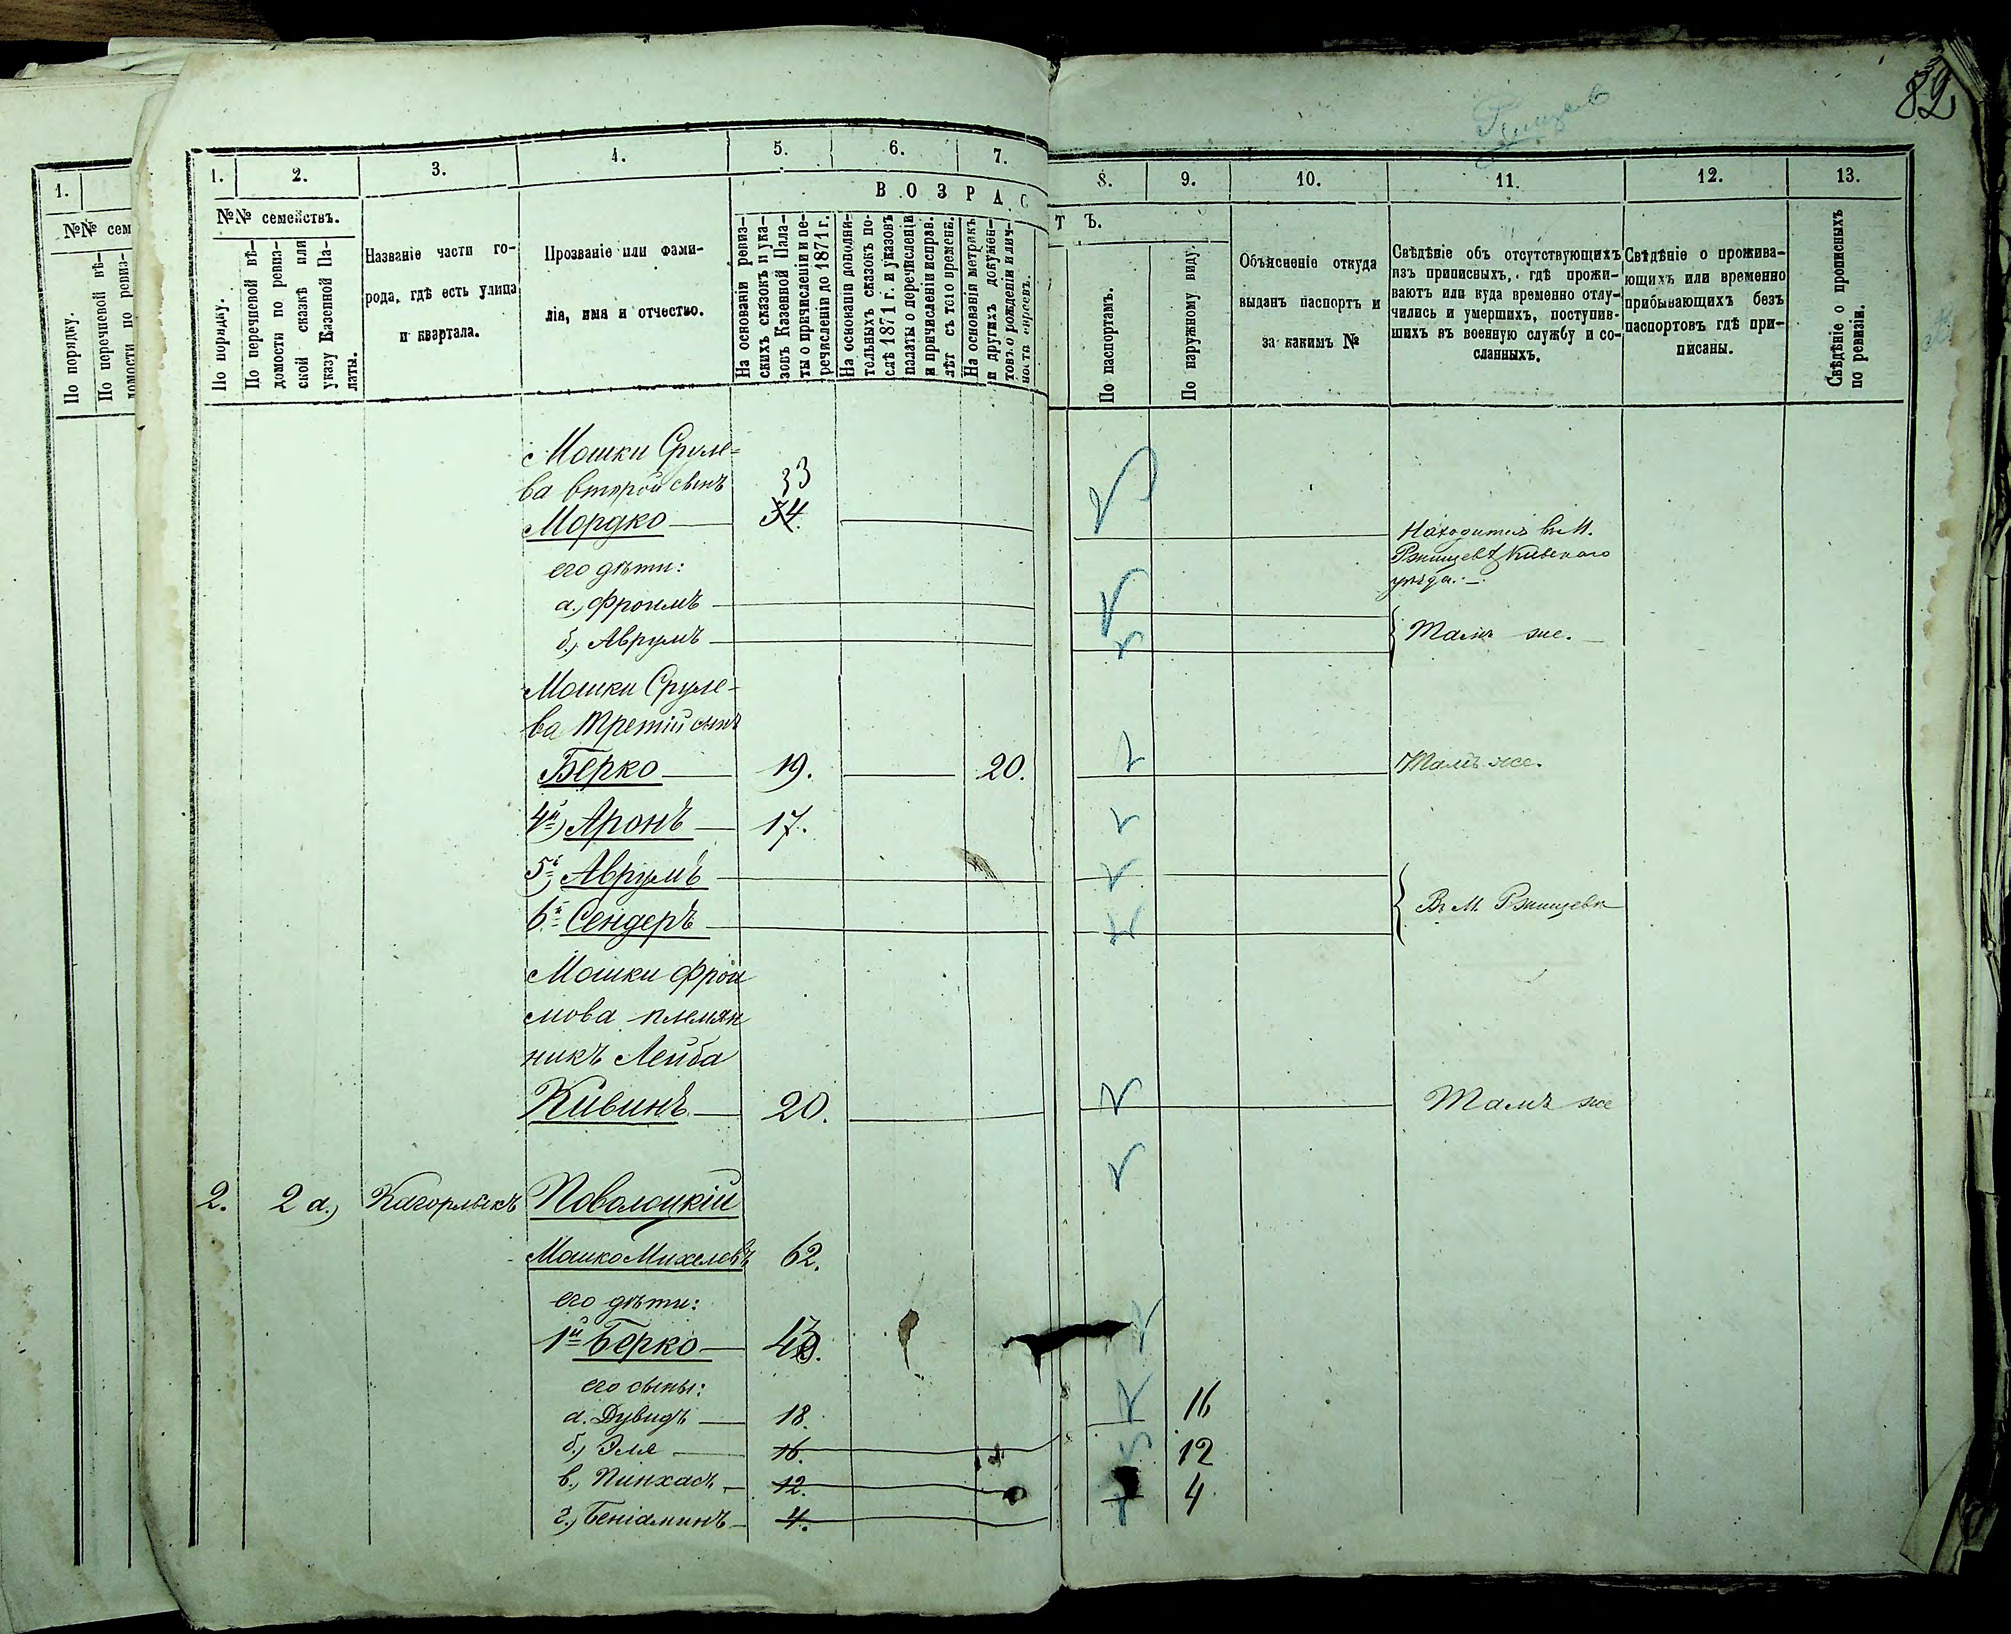 82
Ржищев
1. 2. 3. 4. 5. 6. 7. 8. 9. 10. 11. 12. 13.
1.
№№ сем
По порядку.
По перечневой вѣ-
домости по ревиз-
№№ семействъ.
По порядку.
По перечневой вѣ-
домости по ревиз-
ской сказкѣ или
указу Казенной Па-
латы.
Названіе части го-
рода, гдѣ есть улица
и квартала.
Прозваніе или фами-
лія, имя и отчество.
ВОЗРАСТЪ.
На основаніи ревиз-
скихъ сказокъ и ука-
зовъ Казенной Пала-
ты о причисленіи и пе-
речисленіи до 1871 г.
На основаніи дополни-
тельныхъ сказокъ по-
слѣ 1871 г. и указовъ
палаты о перечисленіи
и причисленіи исправ.
лѣт съ того времени.
На основаніи метрикъ
и другихъ докумен-
товъ о рожденіи и лич-
ности евреевъ.
По паспортамъ.
По наружному виду.
Объясненіе откуда
выданъ паспортъ и
за какимъ №
Свѣдѣніе объ отсутствующихъ
изъ приписныхъ, гдѣ прожи-
ваютъ или куда временно отлу-
чились и умершихъ, поступив-
шихъ въ военную службу и со-
сланныхъ.
Свѣдѣніе о прожива-
ющихъ или временно
прибывающихъ безъ
паспортовъ гдѣ при-
писаны.
Свѣдѣніе о прописныхъ
по ревизіи.
Мошки Сруле-
ва второй сынъ 33
Мордко 34. Находится въ М.
Ржищевѣ Кіевскаго
уѣзда.
его дѣти:
а.) Фроимъ
б.) Аврумъ Тамъ же.
Мошки Сруле-
ва третій сынъ
Берко 19. 20. Тамъ же.
4й) Аронъ 17.
5й) Аврумъ
6й Сендеръ Въ М. Ржищевѣ
Мошки Фрои
мова племян
никъ Лейба
Кивинъ 20. Тамъ же
2. 2 а.) Кагорлыкъ Поволоцкій
Мошко Михелевъ 62.
его дѣти:
1й Берко 43.
его сыны:
а. Дувидъ 18. 16
б.) Эля 16. 12
в.) Пинхасъ 12. 4
г.) Беніаминъ 4.